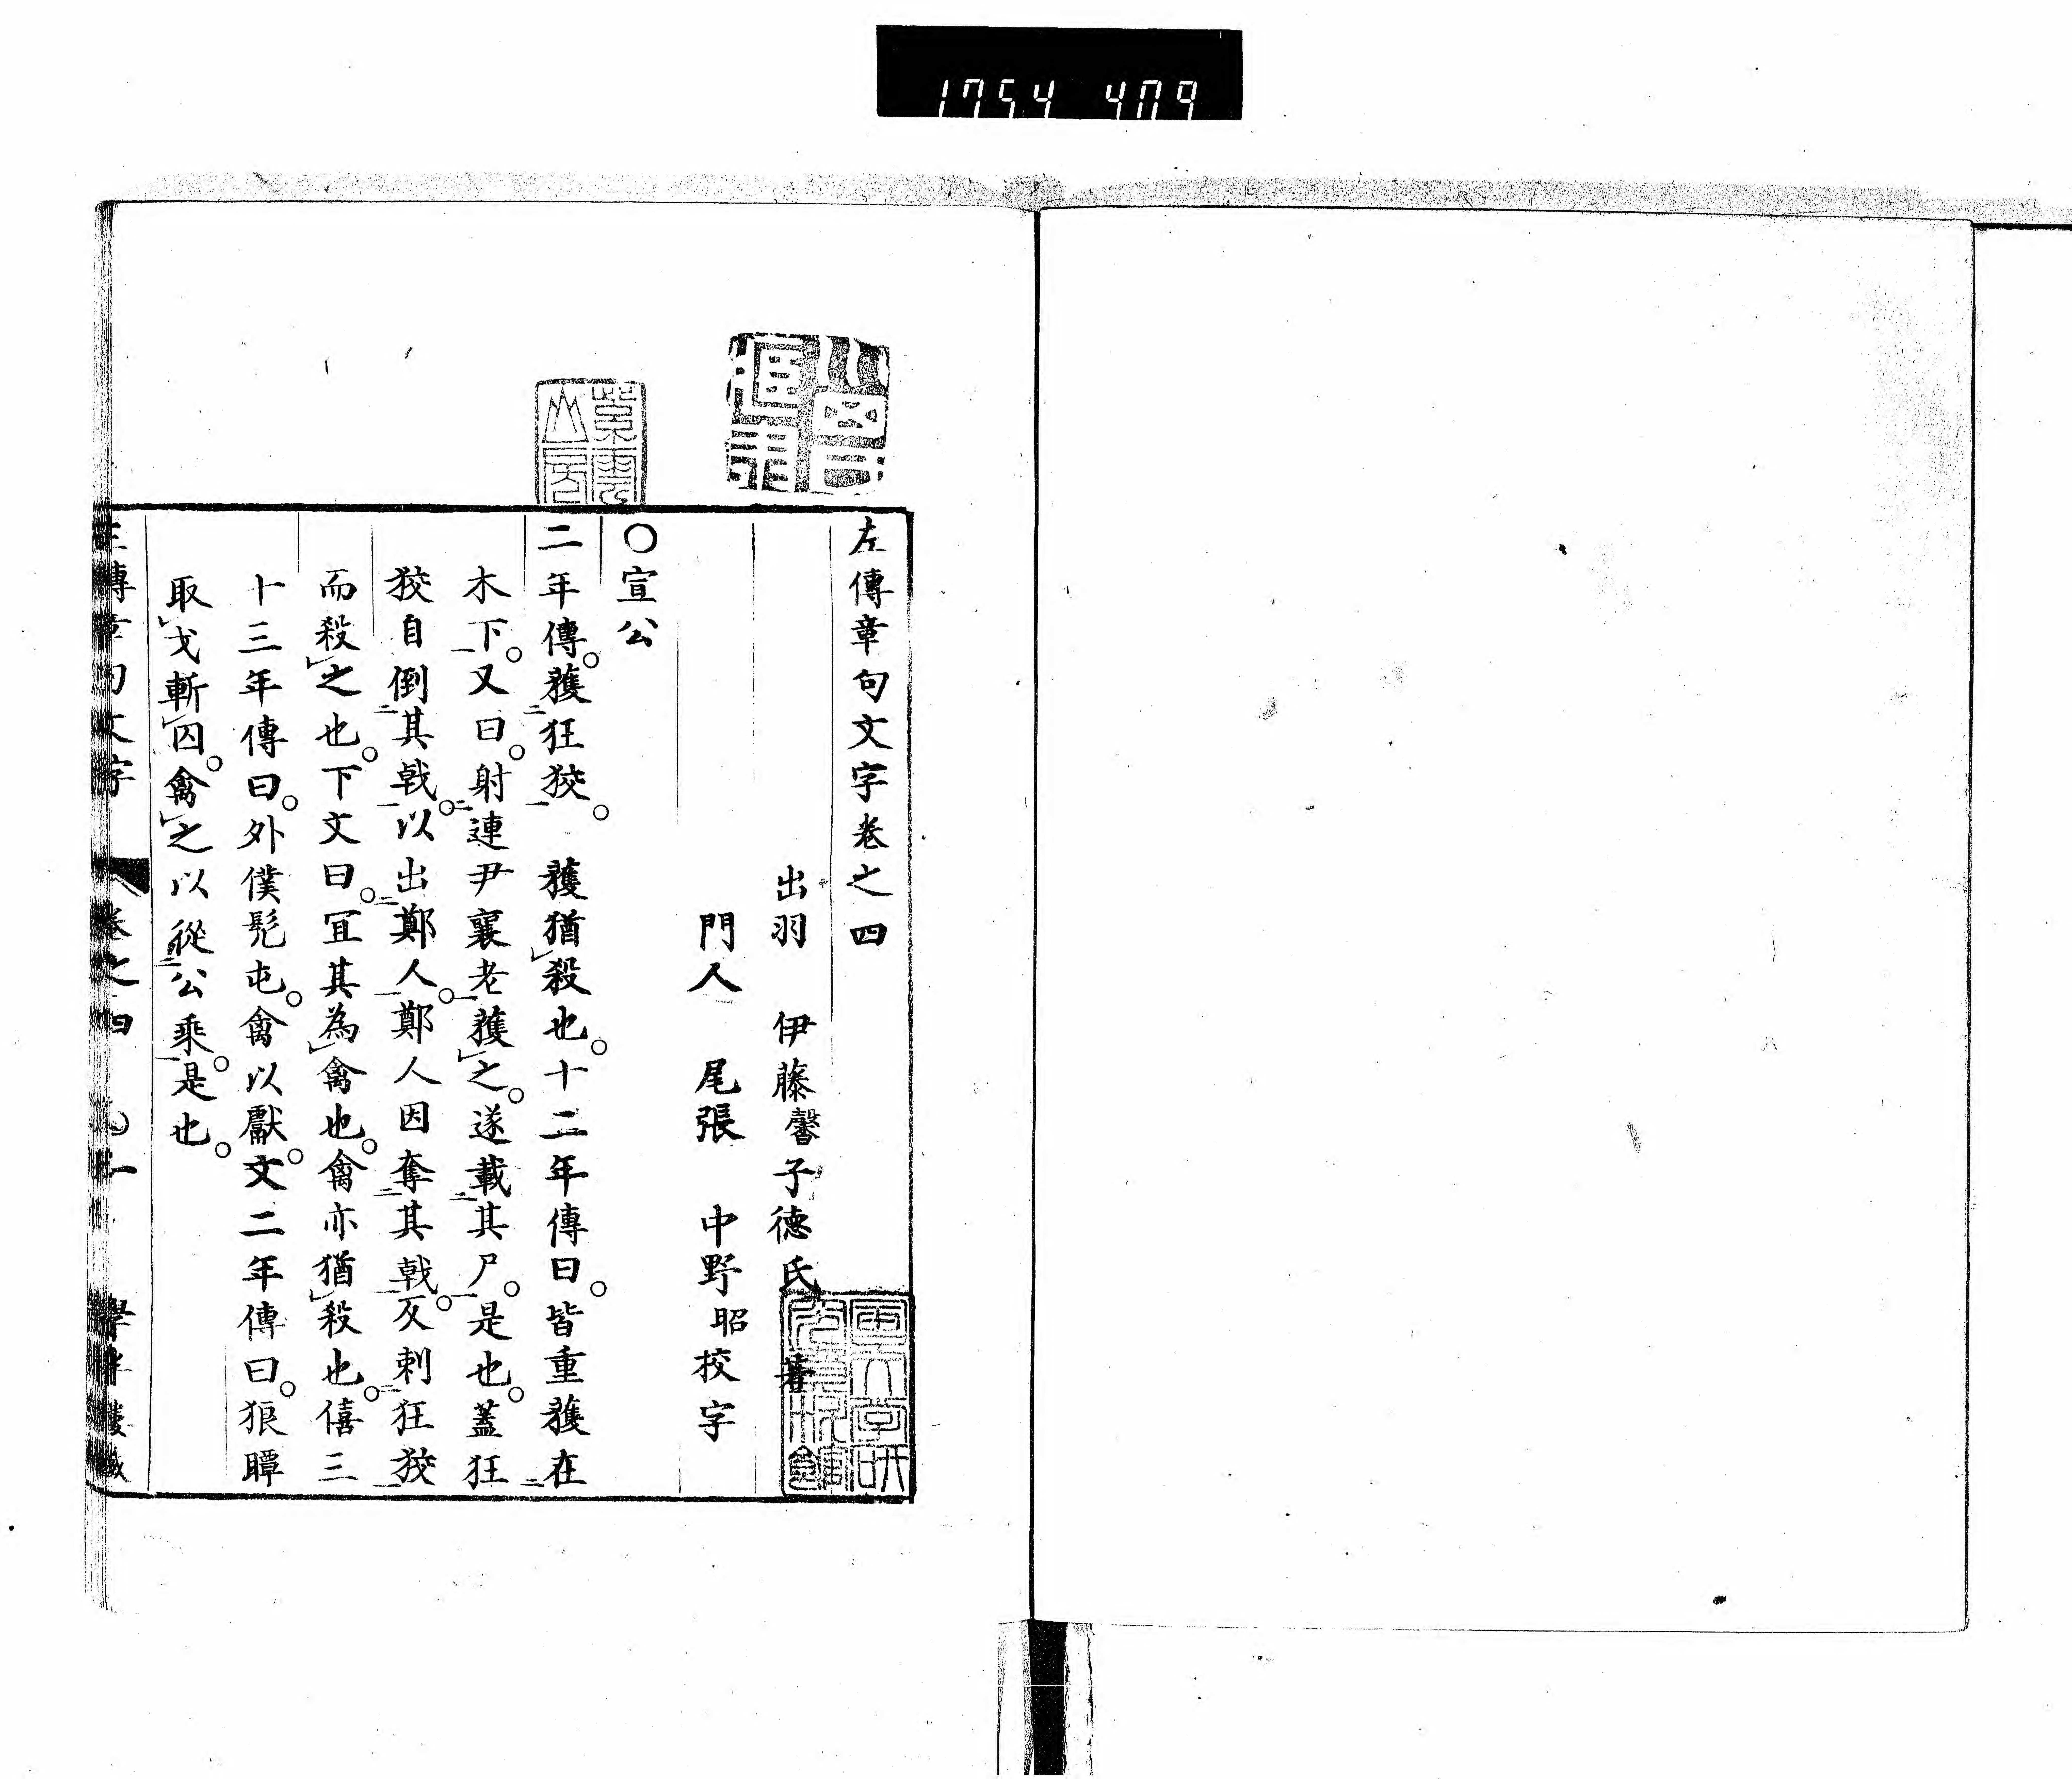 1754 479
左傳章句文字卷之四
出羽 伊藤馨子德氏 著
門人 尾張 中野昭校字
〇宣公
二年傳。獲狂狡。 獲猶殺也。十二年傳曰。皆重獲在
木下。又曰。射連尹襄老獲之。遂載其尸。是也。蓋狂
狡自倒其戟。以出鄭人。鄭人因奪其戟。反刺狂狡
而殺之也。下文曰。宜其為禽也。禽亦猶殺也。僖三
十三年傳曰。外僕髡屯。禽以獻。文二年傳曰。狼瞫
取戈斬囚。禽之以從公乘。是也。
左傳章句文字 卷之四